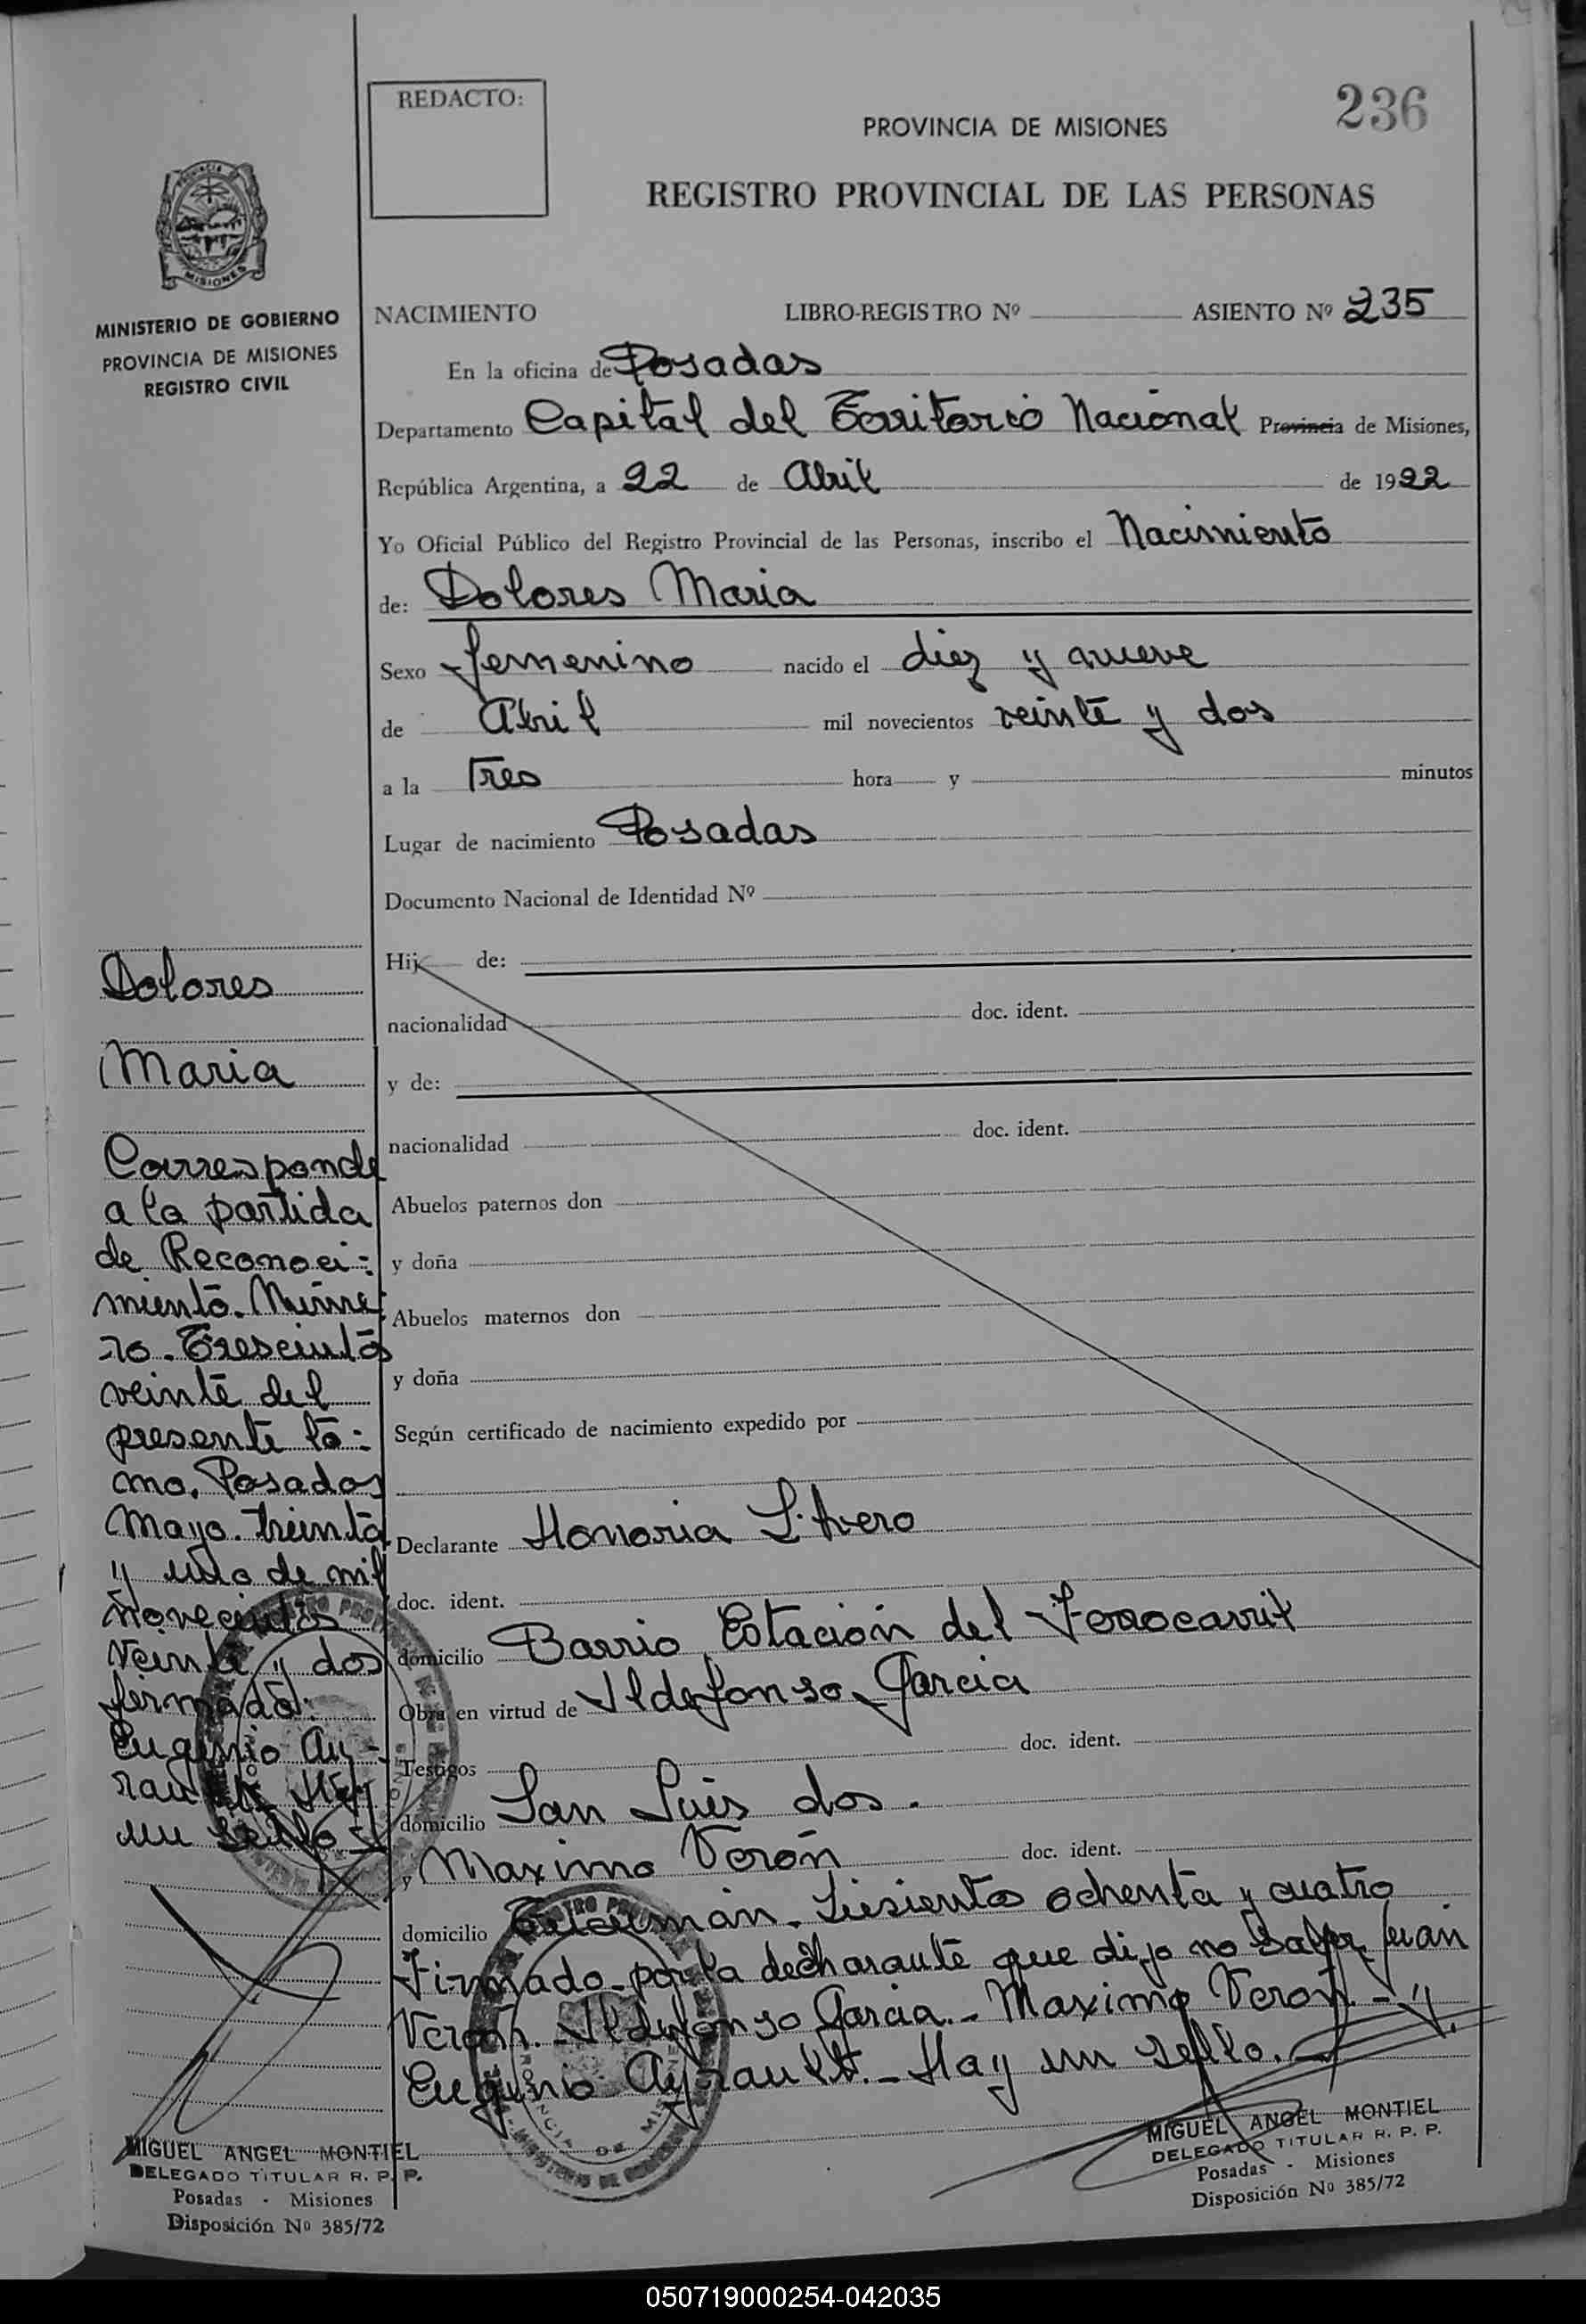 236
REDACTO:
PROVINCIA DE MISIONES
REGISTRO PROVINCIAL DE LAS PERSONAS
MISIONES
MINISTERIO DE GOBIERNO
PROVINCIA DE MISIONES
REGISTRO CIVIL
NACIMIENTO LIBRO-REGISTRO Nº ASIENTO Nº 235
En la oficina de Posadas
Departamento Capital del Territorio Nacional Provincia de Misiones,
República Argentina, a 22 de Abril de 1922
Yo Oficial Público del Registro Provincial de las Personas, inscribo el Nacimiento
de: Dolores Maria
Sexo femenino nacido el diez y nueve
de Abril mil novecientos veinte y dos
a la Tres hora y minutos
Lugar de nacimiento Posadas
Documento Nacional de Identidad Nº
Hij de:
nacionalidad doc. ident.
y de:
nacionalidad doc. ident.
Abuelos paternos don
y doña
Abuelos maternos don
y doña
Según certificado de nacimiento expedido por
Declarante Honoria
doc. ident.
domicilio Barrio Estación del Ferrocarril
Obra en virtud de Ildefonso Garcia
Testigos doc. ident.
domicilio San Luis dos.
y Maximo Verón doc. ident.
domicilio Tucumán ochenta y cuatro
Firmado por la declarante que dijo no saber Juan
Verón. Ildefonso Garcia.- Maximo Verón.-
Eugenio Ayrault.- Hay un sello.
Dolores
Maria
Corresponde
a la partida
de Reconoci-
miento. Núme-
ro. Trescientos
veinte del
presente to-
mo. Posadas
Mayo. treinta
y uno de mil
novecientos
veinte y dos
firmado:
Eugenio Ay-
rault Hay
un sello
MIGUEL ANGEL MONTIEL
DELEGADO TITULAR R. P. P.
Posadas - Misiones
Disposición Nº 385/72
MIGUEL ANGEL MONTIEL
DELEGADO TITULAR R. P. P.
Posadas - Misiones
Disposición Nº 385/72
050719000254-042035